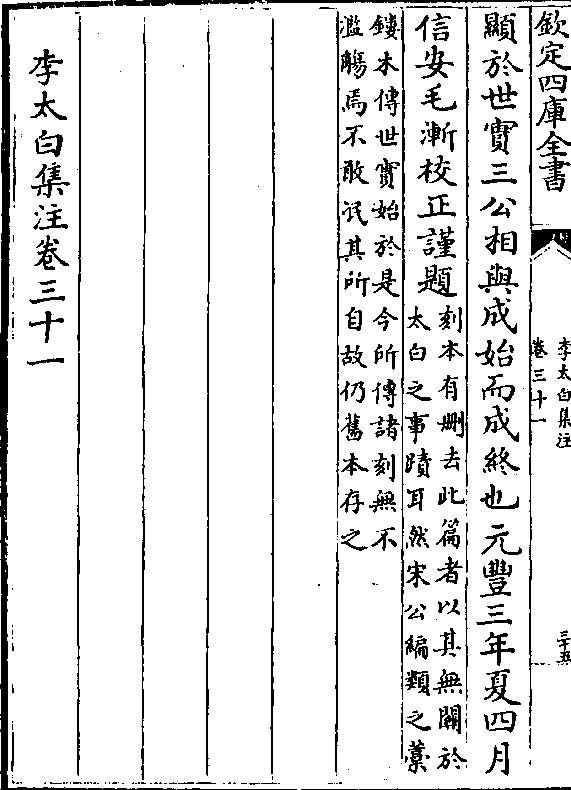 欽定四庫全書
李太白集注
卷三十一
三十五
顯於世實三公相與成始而成終也元豐三年夏四月
信安毛漸校正謹題
刻本有刪去此篇者以其無關於
太白之事蹟耳然宋公編類之藁
鏤木傳世實始於是今所傳諸刻無不
濫觴焉不敢泯其所自故仍舊本存之
李太白集注卷三十一